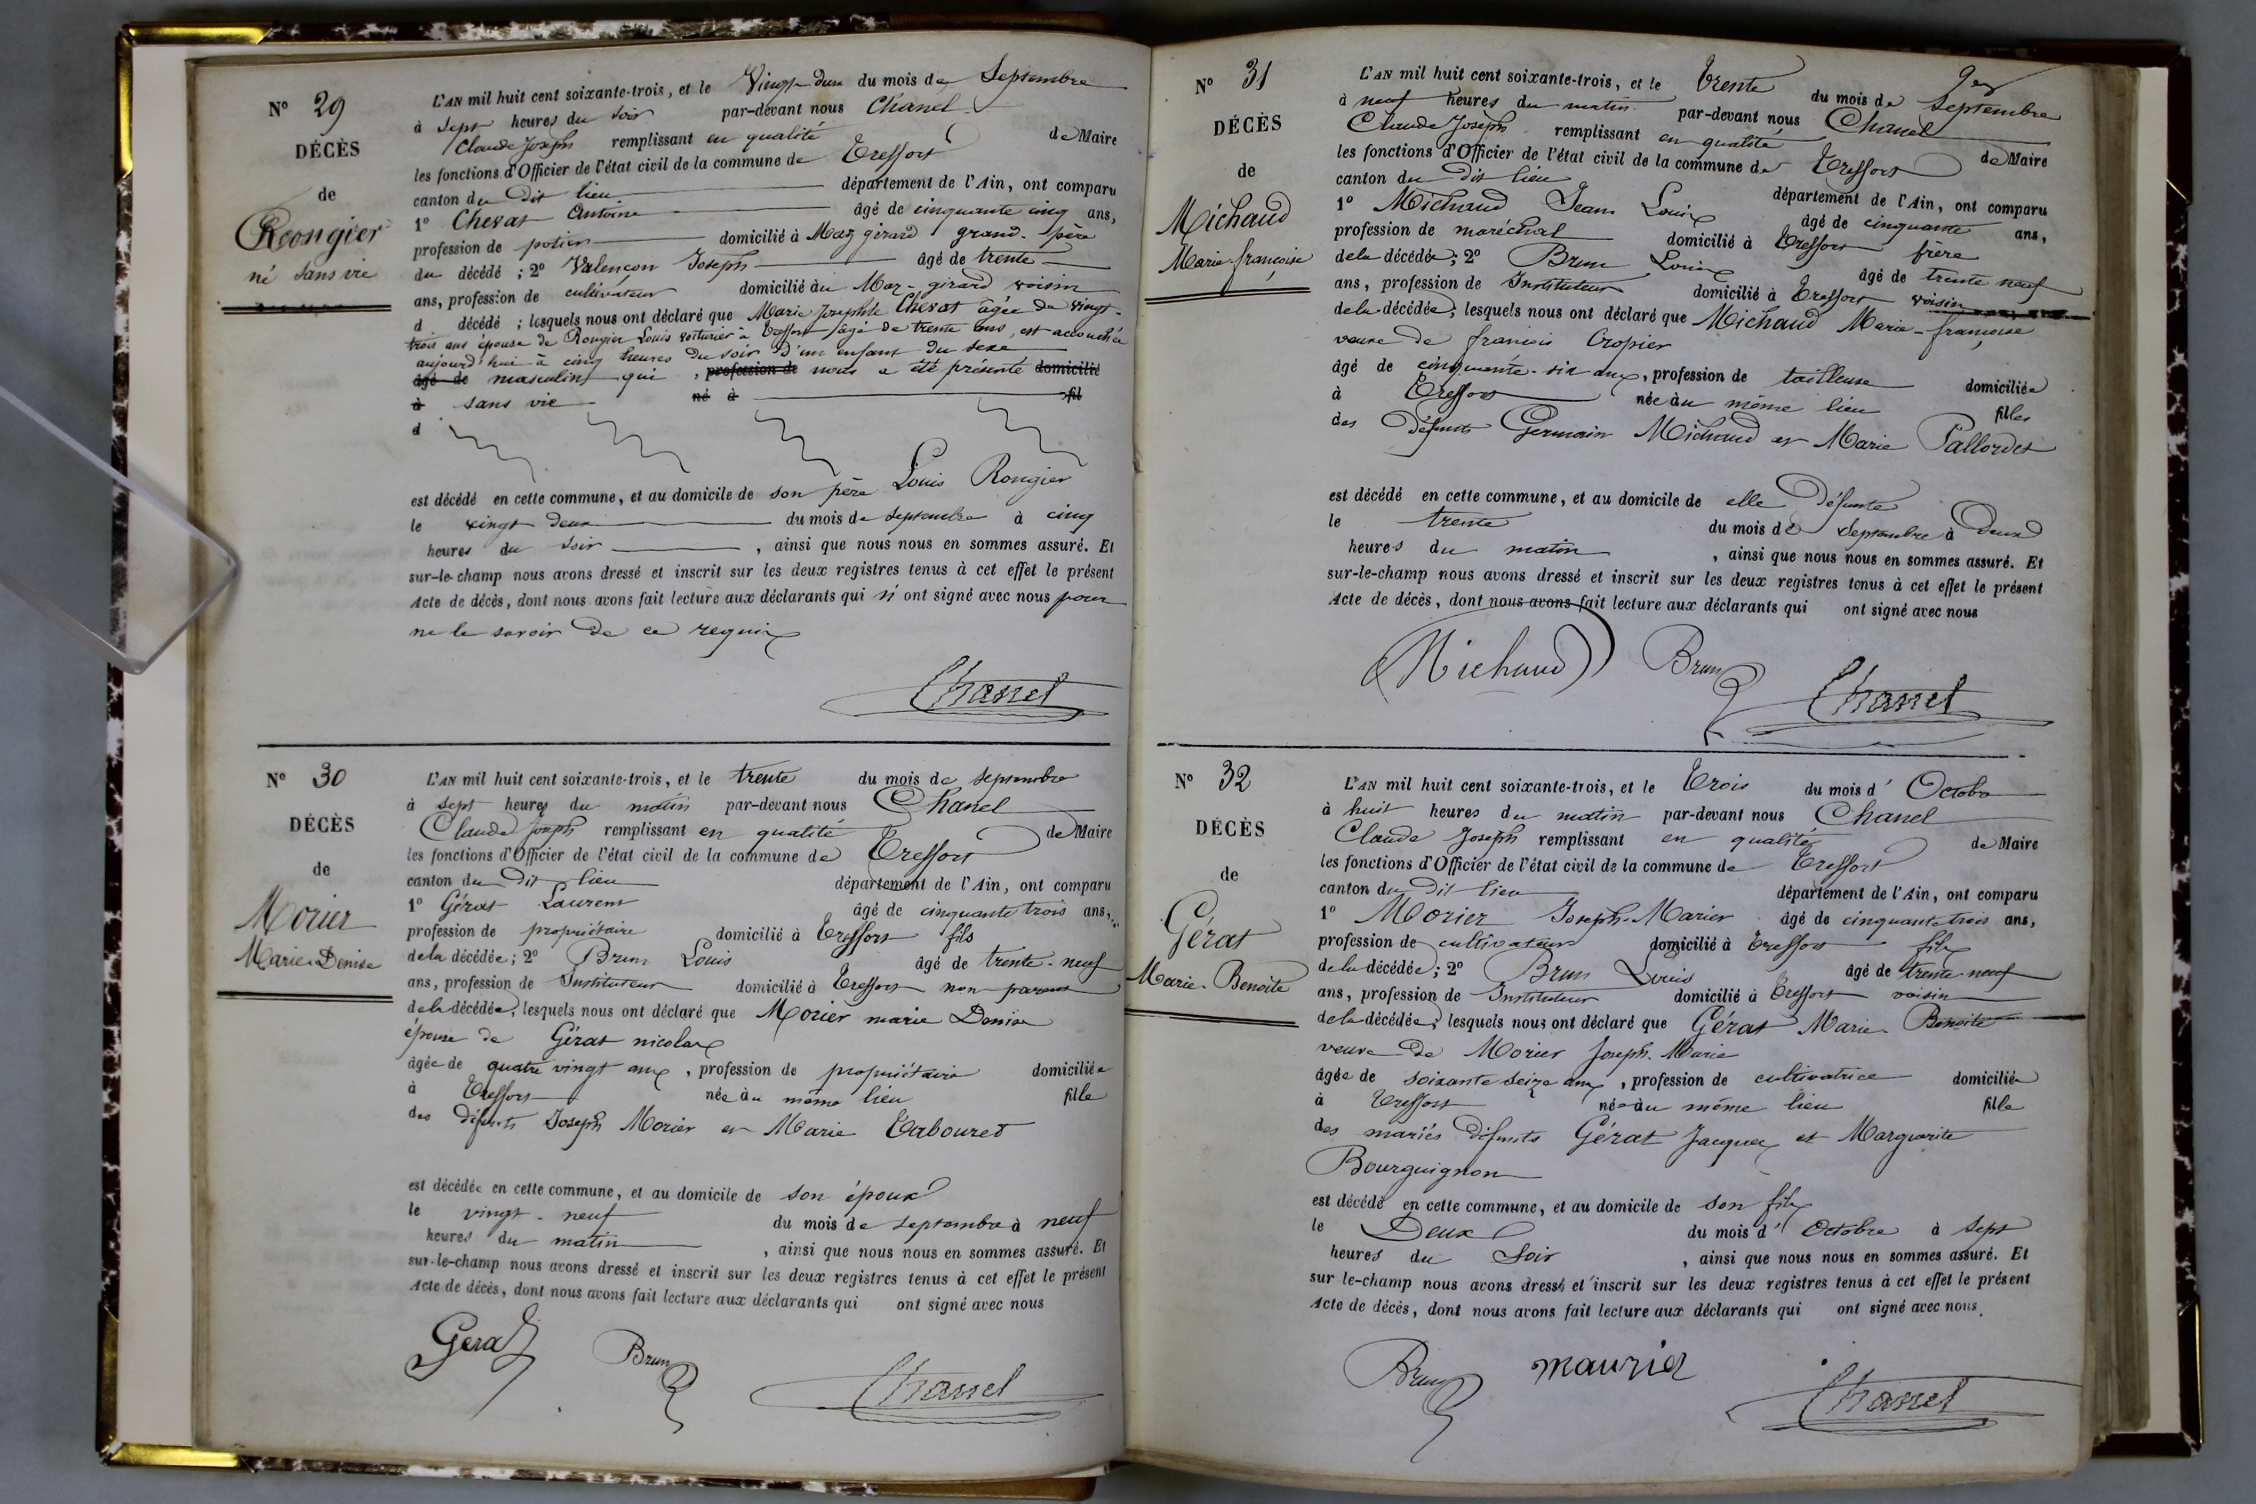 N° 29
DÉCÈS
de
Rongier
né sans vie
L'AN mil huit cent soixante-trois, et le Vingt deux du mois de Septembre
à sept heures du soir par-devant nous Chanel
Claude Joseph remplissant en qualité de Maire
les fonctions d'Officier de l'état civil de la commune de Treffort
canton du dit lieu département de l'Ain, ont comparu
1° Chevat Antoine âgé de cinquante cinq ans,
profession de potier domicilié à Maz girard grand-père
du décédé ; 2° Valençon Joseph âgé de trente
ans, profession de cultivateur domicilié au Maz-girard voisin
d décédé ; lesquels nous ont déclaré que Marie Josephte Chevat âgée de vingt-
trois ans épouse de Rongier Louis voiturier à Treffort âgé de trente ans, est accouchée
aujourd'hui à cinq heures du soir d'un enfant du sexe
âgé de masculin qui , profession de nous a été présenté domicilié
à sans vie né à fil
d
est décédé en cette commune, et au domicile de son père Louis Rongier
le vingt deux du mois de septembre à cinq
heures du soir , ainsi que nous nous en sommes assuré. Et
sur-le-champ nous avons dressé et inscrit sur les deux registres tenus à cet effet le présent
Acte de décès, dont nous avons fait lecture aux déclarants qui n' ont signé avec nous pour
ne le savoir de ce requis
Chanel
N° 30
DÉCÈS
de
Morier
Marie Denise
L'AN mil huit cent soixante-trois, et le trente du mois de septembre
à sept heures du matin par-devant nous Chanel
Claude Joseph remplissant en qualité de Maire
les fonctions d'Officier de l'état civil de la commune de Treffort
canton du dit lieu département de l'Ain, ont comparu
1° Gérat Laurent âgé de cinquante trois ans,
profession de propriétaire domicilié à Treffort fils
de la décédée ; 2° Brun Louis âgé de trente-neuf
ans, profession de Instituteur domicilié à Treffort non parent
de la décédée, lesquels nous ont déclaré que Morier marie Denise
épouse de Gérat nicolas
âgée de quatre vingt ans, profession de propriétaire domiciliée
à Treffort née au même lieu fille
des défunts Joseph Morier et Marie Tabouret
est décédée en cette commune, et au domicile de son époux
le vingt-neuf du mois de septembre à neuf
heures du matin , ainsi que nous nous en sommes assuré. Et
sur-le-champ nous avons dressé et inscrit sur les deux registres tenus à cet effet le présent
Acte de décès, dont nous avons fait lecture aux déclarants qui ont signé avec nous
Gerat Brun Chanel
N° 31
DÉCÈS
de
Michaud
Marie-françoise
L'AN mil huit cent soixante-trois, et le Trente du mois de Septembre
à neuf heures du matin par-devant nous Chanel
Claude Joseph remplissant en qualité de Maire
les fonctions d'Officier de l'état civil de la commune de Treffort
canton du dit lieu département de l'Ain, ont comparu
1° Michaud Jean Louis âgé de cinquante ans,
profession de maréchal domicilié à Treffort frère
de la décédée ; 2° Brun Louis âgé de trente neuf
ans, profession de Instituteur domicilié à Treffort voisin
de la décédée, lesquels nous ont déclaré que Michaud Marie-françoise
veuve de francois Cropier
âgé de cinquante-six ans, profession de tailleuse domiciliée
à Treffort née au même lieu fille
des défunts Germain Michaud et Marie Pallordet
est décédé en cette commune, et au domicile de elle Défunte
le trente du mois de Septembre à Deux
heures du matin , ainsi que nous nous en sommes assuré. Et
sur-le-champ nous avons dressé et inscrit sur les deux registres tenus à cet effet le présent
Acte de décès, dont nous avons fait lecture aux déclarants qui ont signé avec nous
Michaud Brun Chanel
N° 32
DÉCÈS
de
Gérat
Marie-Benoite
L'AN mil huit cent soixante-trois, et le Trois du mois d' Octobre
à huit heures du matin par-devant nous Chanel
Claude Joseph remplissant en qualité de Maire
les fonctions d'Officier de l'état civil de la commune de Treffort
canton du dit lieu département de l'Ain, ont comparu
1° Morier Joseph-Marie âgé de cinquante trois ans,
profession de cultivateur domicilié à Treffort fils
de la décédée ; 2° Brun Louis âgé de trente neuf
ans, profession de Instituteur domicilié à Treffort voisin
de la décédée, lesquels nous ont déclaré que Gérat Marie-Benoite
veuve de Morier Joseph-Marie
âgée de soixante seize ans, profession de cultivatrice domiciliée
à Treffort née au même lieu fille
des mariés défunts Gérat Jacques et Marguerite
Bourguignon
est décédé en cette commune, et au domicile de son fils
le Deux du mois d' Octobre à sept
heures du Soir , ainsi que nous nous en sommes assuré. Et
sur le-champ nous avons dressé et inscrit sur les deux registres tenus à cet effet le présent
Acte de décès, dont nous avons fait lecture aux déclarants qui ont signé avec nous.
Brun maurier Chanel